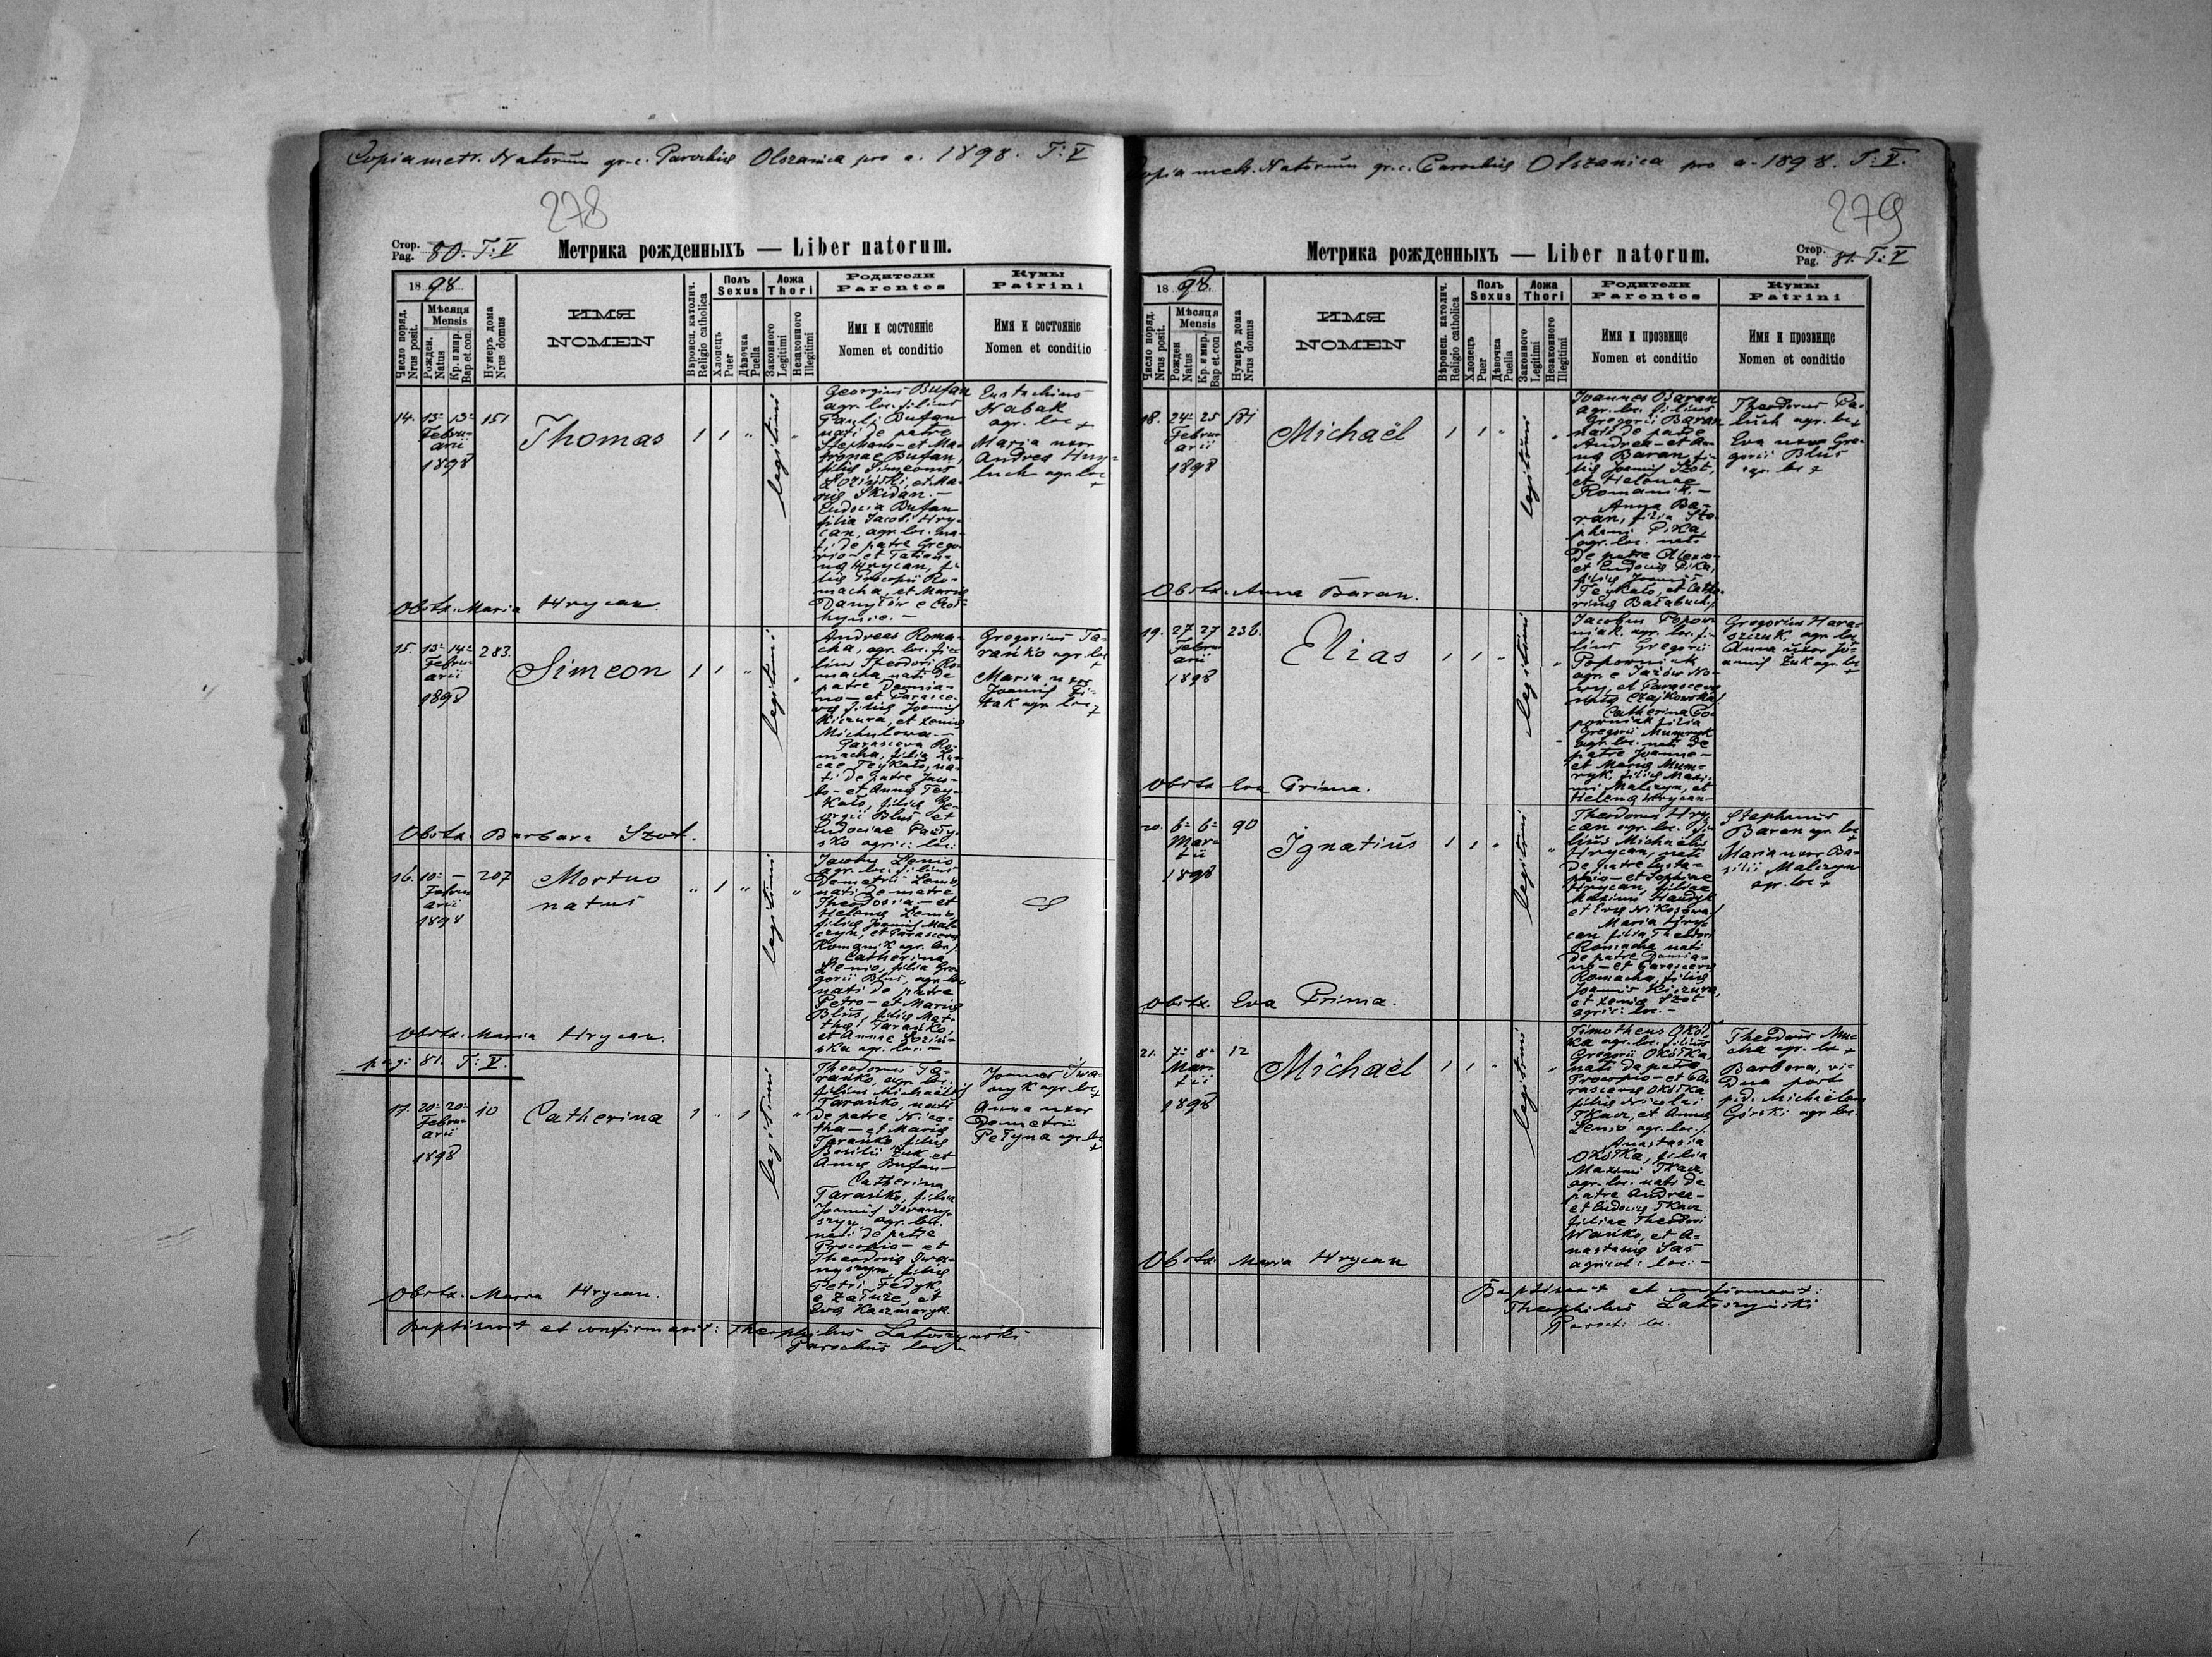 Copia metr. Natorum gr.c. Parochię Olszanica pro a. 1898. T: V
278
Стор.
Pag. 80. T: V
Метрика рожденныхъ — Liber natorum.
18 98
Число поряд.
Nrus posit.
Мѣсяця
Mensis
Рожден.
Natus
Кр. и мир.
Bap. et. con.
Нумеръ дома
Nrus domus
ИМЯ
NOMEN
Вѣроисп. католич.
Religio catholica
Полъ
Sexus
Хлопець
Puer
Дѣвочка
Puella
Ложа
Thori
Законного
Legitimi
Незаконного
Illegitimi
Родители
Parentes
Имя и состояніе
Nomen et conditio
Кумы
Patrini
Имя и состояніе
Nomen et conditio
14. 13 13 151
Februarii
1898
Thomas
1 1 " legitimi "
Georgius Bufan
agr. loc. filius
Pauli Bufan
nati de patre
Stephano – et Ma-
tronae Bufan,
filię Simeonis
Łoziński, et Ma-
rię Skidan. –
Eudocia Bufan
filia Jacobi Hry-
can, agr. loc. na-
ti de patre Grego-
rio – et Tatian-
nę Hrycan, fi-
lię Procopii Ro-
macha, et Marię
Danyłów e
Eustachius
Habak
agr. loc +
Maria uxor
Andrea
luch agr. loc
+
Obstx. Maria Hrycan.
15. 13 14 283
Februarii
1898
Simeon
1 1 " legitimi "
Andreas Roma-
cha, agr. loc. fi-
lius Theodori Ro-
macha, nati de
patre Damia-
no – et Parasce-
vę filię Joannis
Kiczura, et Xenię
Michulowa –
Parasceva Ro-
macha, filia Lu-
cae Teykało, na-
ti de patre Jaco-
bo – et Annę Tey-
kało, filię Ge-
orgii Bluś et
Eudociae
sko agric: loc:
Gregorius Ta-
rańko agr. loc
+
Maria uxor
Joannis
agr. loc
+
Obstx. Barbara Szot.
16. 10 – 207
Februarii
1898
Mortuo
natus
" 1 " legitimi "
Jacobus Lenio
agr. loc. filius
Demetrii Lenio
nati de matre
Theodosia – et
Helenę Lenio
filię Joannis Mal-
czyn, et Parascevę
Romanik agr. loc/
Catherina
Lenio, filia Gre-
gorii Bluś, agr. loc
nati de patre
Petro – et Marię
Bluś, filię Mat-
thęi Tarańko,
et Annae Łoziń-
ska agr. loc. –
Obstx. Maria Hrycan.
pag: 81. T: V.
17. 20 20 10
Februarii
1898
Catherina
1 " 1 legitimi "
Theodorus Ta-
rańko, agr. loc.
filius Michaelis
Tarańko, nati
de patre Nice-
tha – et Marię
Tarańko, filię
Basilii Żuk et
Annę Bufan –
Catherina
Tarańko, filia
Joannis Iwany-
szyn, agr. loc.
nati de patre
Procopio – et
Theodorię Iwa-
nyszyn, filię
Petri Fedyk
e Załuże, et
Evę Kaczmaryk.
Joannes Iwa-
nyk agr. loc
+
Anna uxor
Demetrii
Petyna agr. loc
+
Obstx. Maria Hrycan.
Baptisavit et confirmavit: Theophilus Latoszyński
Parochus loc.
Copia metr. Natorum gr.c. Parochię Olszanica pro a. 1898. T: V.
279
Метрика рожденныхъ — Liber natorum.
Стор.
Pag. 81. T: V
18 98
Число поряд.
Nrus posit.
Мѣсяця
Mensis
Рожден
Natus
Кр. и мир.
Bap et. con
Нумеръ дома
Nrus domus
ИМЯ
NOMEN
Вѣроисп. католич.
Religio catholica
Полъ
Sexus
Хлопець
Puer
Дѣвочка
Puella
Ложа
Thori
Законного
Legitimi
Незаконного
Illegitimi
Родители
Parentes
Имя и прозвище
Nomen et conditio
Кумы
Patrini
Имя и прозвище
Nomen et conditio
18. 24 25 181
Februarii
1898
Michaël
1 1 " legitimi "
Joannes Baran
agr. loc. filius
Gregorii Baran
nati de patre
Andrea – et An-
nę Baran, fi-
lię Joannis Szot,
et Helenae
Romanik. –
Anna Ba-
ran, filia Ste-
phani Pika
agr. loc. nati
de patre Alexio –
et Eudocię Pika,
filię Joannis
Teykało, et Cathe-
rinę Bałabuch/
Theodorus Pa-
luch agr. loc +
Eva uxor Gre-
gorii Bluś
agr. loc +
Obstx. Anna Baran.
19. 27 27 236.
Februarii
1898
Elias
1 1 " legitimi "
Jacobus Popow-
niak agr. loc. fi-
lius Gregorii
Popowniak
agr. e Jazów No-
wy, et Parascevę
Czajkowska/
Catherina Po-
powniak filia
Gregorii Mumryk
agr. loc. nati de
patre Joanne –
et Marię Mum-
ryk, filię Maxi-
mi Malczyn, et
Helenę Hrycan –
Gregorius Hara-
szczuk, agr. loc
Anna uxor Jo-
annis Żuk agr. loc
+
Obstx Eva Prima.
20. 6 6 90
Martii
1898
Ignatius
1 1 " legitimi "
Theodorus Hry-
can agr. loc. fi-
lius Michaëlis
Hrycan, nati
de patre Eusta-
phio – et Sophiae
Hrycan, filiae
Maximi Hawdyk
et Evę
Maria Hry-
can filia Theodori
Romacha nati
de patre Damia-
no – et Parascevę
Romacha, filię
Joannis Kiczura,
et Xenię Szot
agric. loc. –
Stephanus
Baran agr. loc
+
Maria uxor Ba-
silii Malczyn
agr. loc +
Obstx. Eva Prima.
21. 7 8 12
Martii
1898
Michaël
1 1 " legitimi "
Timotheus Okół-
ka agr. loc. filius
Gregorii Okółka,
nati de patre
Procopio – et Pa-
rascevę Okółka
filię Nicolai
Tkacz, et Annę
Lenio agr. loc./
Anastasia
Okółka, filia
Maximi Tkacz
agr. loc. nati de
patre Andrea –
et Eudocię Tkacz
filiae Theodori
Wańko, et A-
nastasię Sas
agricol: loc: –
Theodorus Mu-
cha agr. loc +
Barbara, vi-
dua post
p.d. Michaëlem
Górski agr loc.
Obstx. Maria Hrycan
Baptisavit et confirmavit:
Theophilus Latoszyński
Paroch: loc.